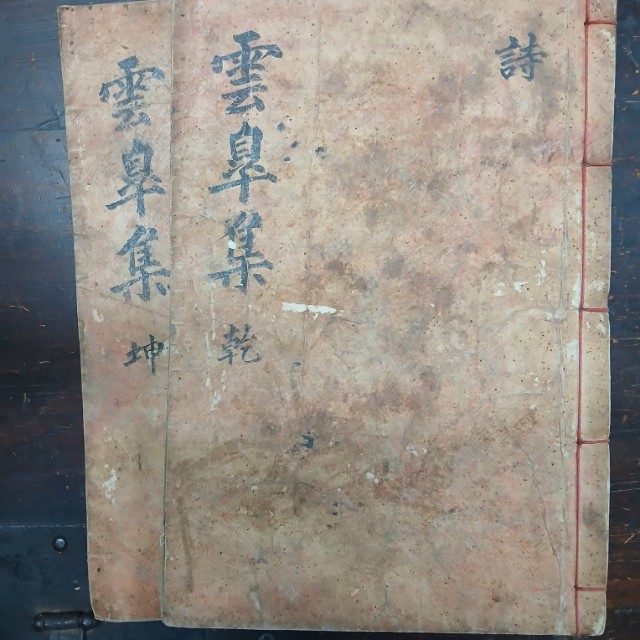 詩
雲皐集
乾
雲皐集
坤